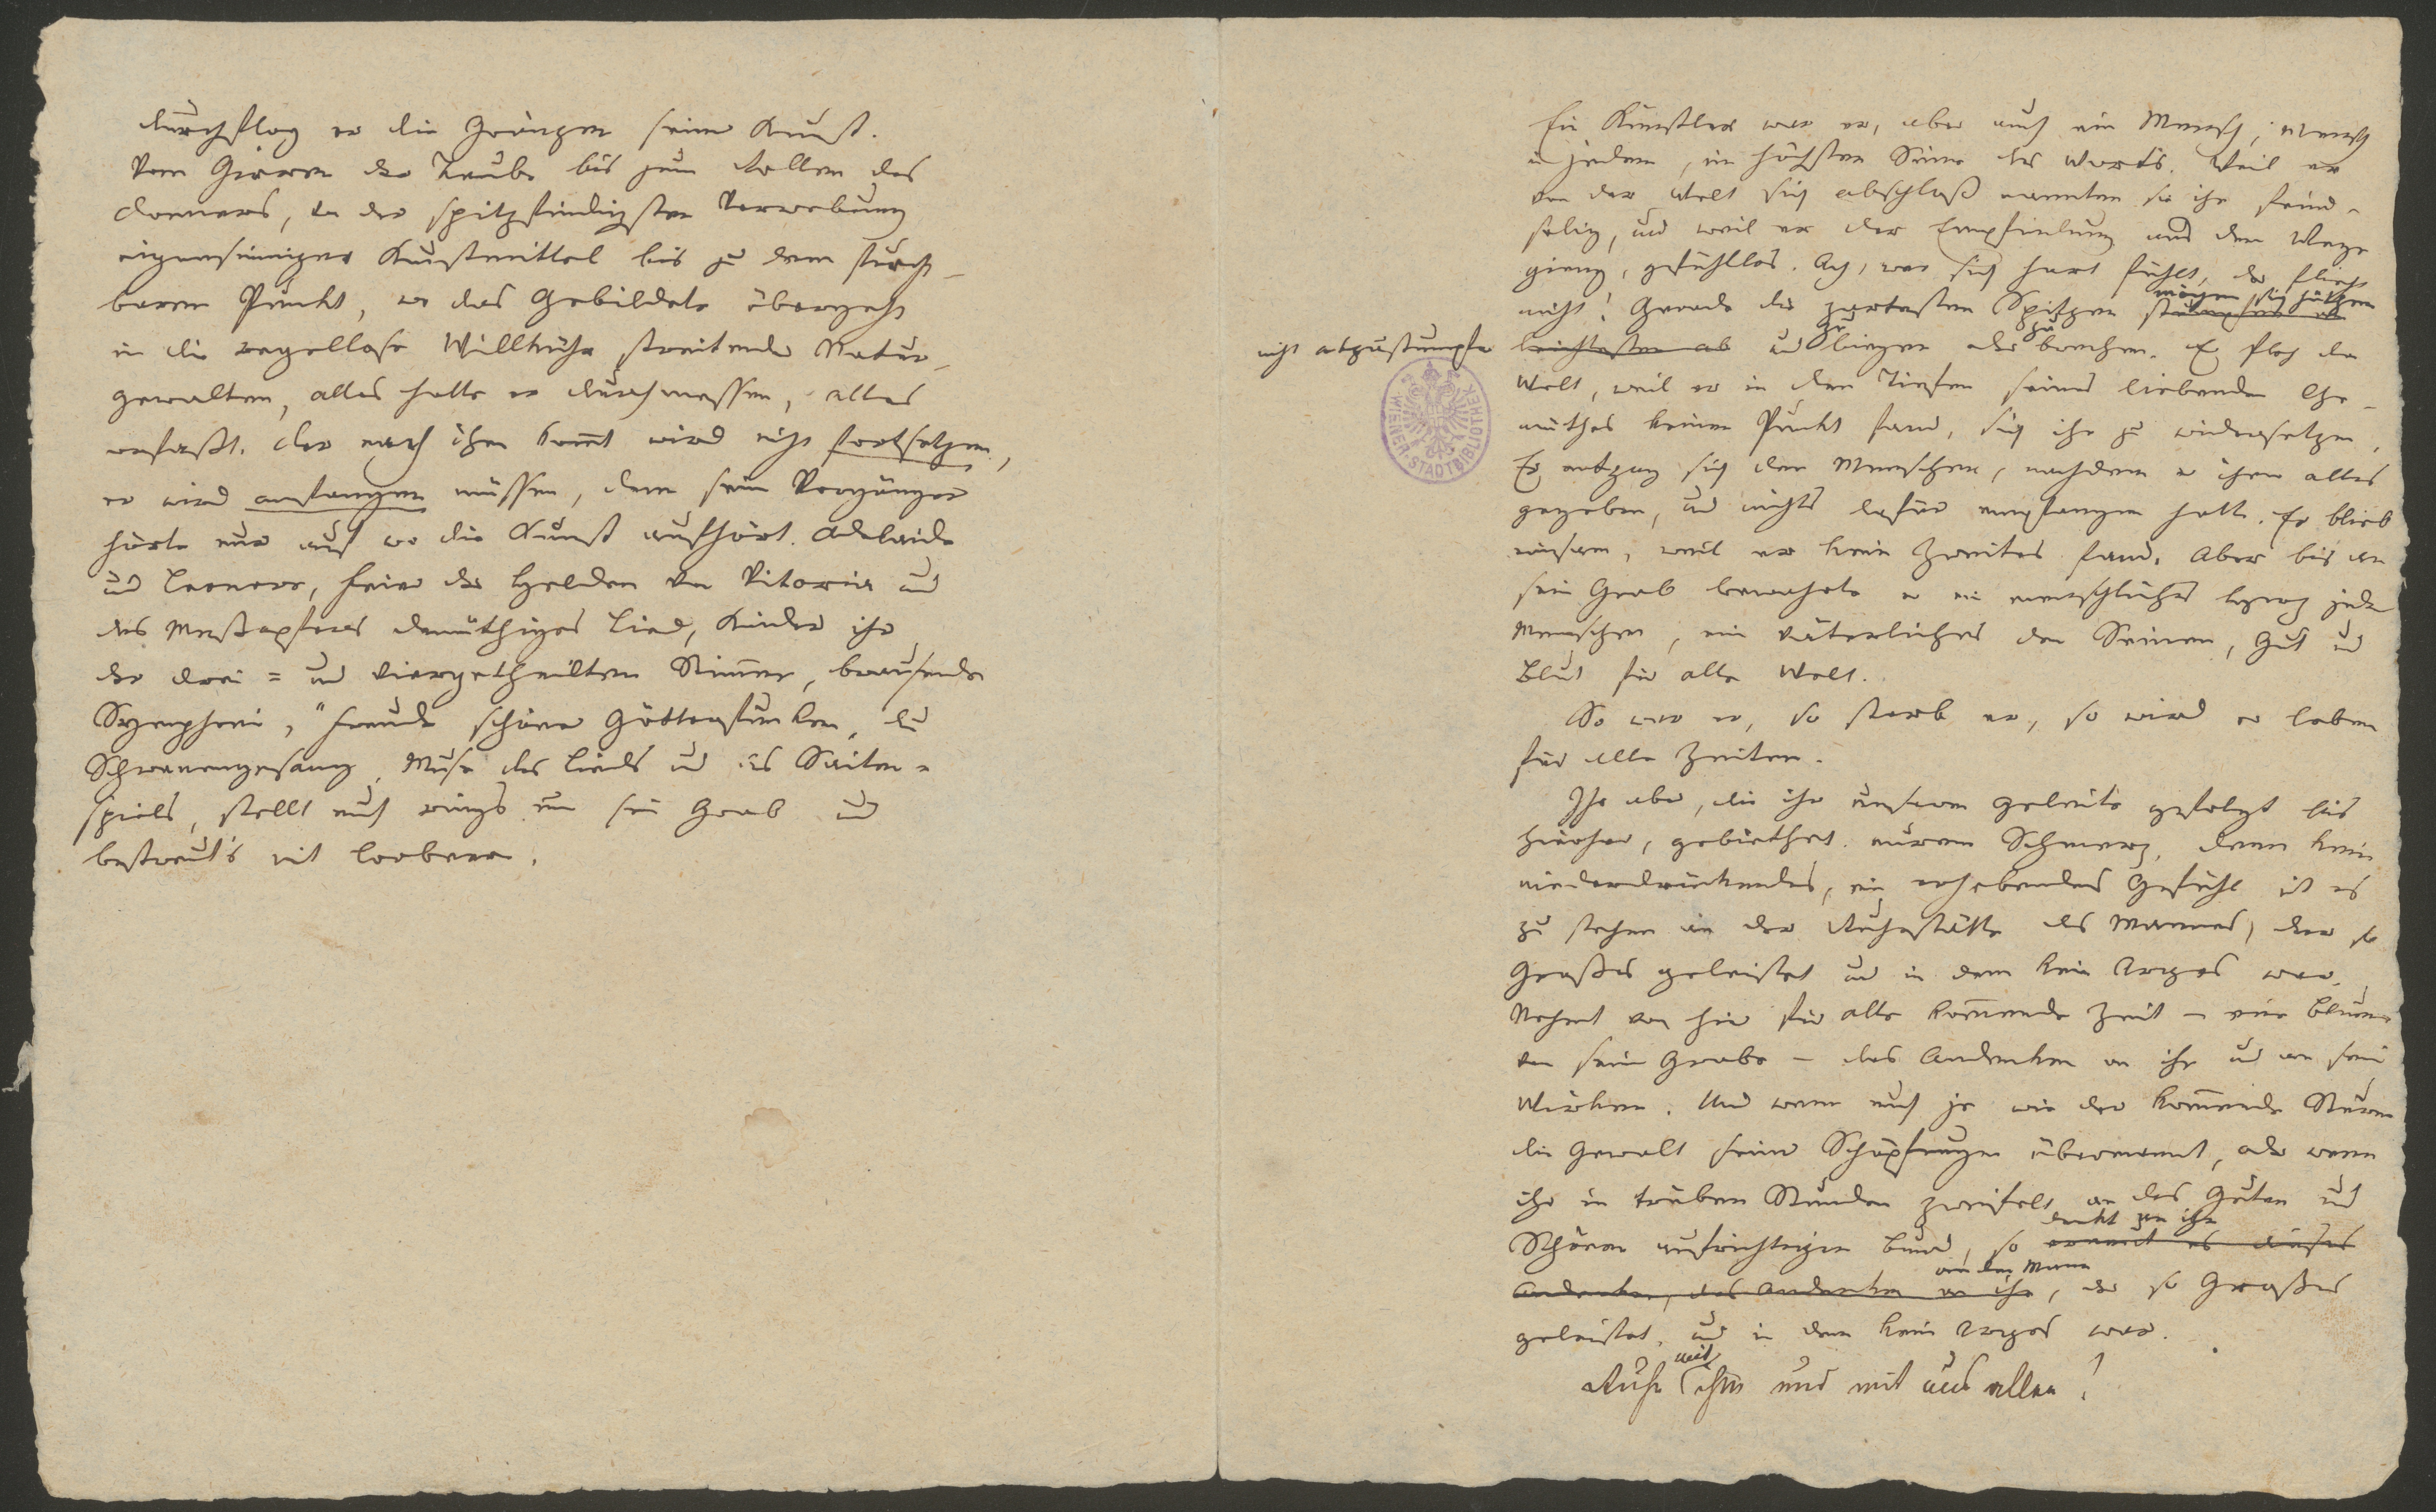 durchflog er die Gränzen seiner Kunst.
Vom Girren der Taube bis zum Rollen des
Donners, von der spitzfindigsten Verwebung
eigensinniger Kunstmittel bis zu dem furcht-
baren Punkt, wo das Gebildete übergeht
in die regellose Willkühr streitender Natur-
gewalten, alles hatte er durchmessen, alles
erfaßt. Der nach ihm kom̅t wird nicht fortsetzen,
er wird anfangen müssen, denn sein Vorgänger
hörte nur auf wo die Kunst aufhört. Adelaide
und Leonore, Feier der Helden von Vitoria und
des Meßopfers demüthiges Lied, Kinder ihr
der drei= und viergetheilten Stim̅en, brausende
Symphonie, "Freude schöner Götterfunken, du
Schwanengesang, Muse des Lieds und des Saiten-
spiels, stellt euch rings um sein Grab und
bestreut's mit Lorbeern.
Ein Künstler war er, aber auch ein Mensch, Mensch
in jedem, im höchsten Sinne des Worts. Weil er
von der Welt sich abschloß nannten sie ihn feind-
selig, und weil er der Empfindung aus dem Wege
gieng, gefühllos. Ach, wer sich hart fühlt, der flieht
nicht! Gerade die zartesten Spitzen stumpfen am
mögen sich hüthen
nicht abzustumpfen
leichtesten ab und zu biegen oder zu brechen. Er floh die
Welt, weil er in den Tiefen seines liebenden Ge-
müthes keinen Punkt fand, sich ihr zu widersetzen,
WIENER·STADTBIBLIOTHEK
Er entzog sich den Menschen, nachdem er ihnen alles
gegeben, und nichts dafür empfangen hatte. Er blieb
einsam, weil er kein Zweites fand. Aber bis an
sein Grab bewahrte er ein menschliches Herz jedem
Menschen, ein väterliches den Seinen, Gut und
Blut für alle Welt.
So war er, so starb er, so wird er leben
für alle Zeiten.
Ihr aber, die ihr unserm Geleite gefolgt bis
hierher, gebiethet eurem Schmerz, denn kein
niederdrückendes, ein erhebendes Gefühl ist es
zu stehen an der Ruhestätte des Mannes, der so
Großes geleistet und in dem kein Arges war.
Nehmt von hier für alle kom̅ende Zeit - eine Blume
von sein Grabe - das Andenken an ihn und an sein
Wirken. Und wenn euch je wie der kom̅ende Sturm
die Gewalt seiner Schöpfungen übermannt, oder wenn
ihr in trüben Stunden zweifelt an des Guten und
denkt an ihn
Schönen aufrichtigen Bund, so ermannt es dieses
an den Mann
Andenken, das Andenken an ihn, der so Großes
geleistet, und in dem kein Arges war.
Ruhe mit ihm und mit uns allen!